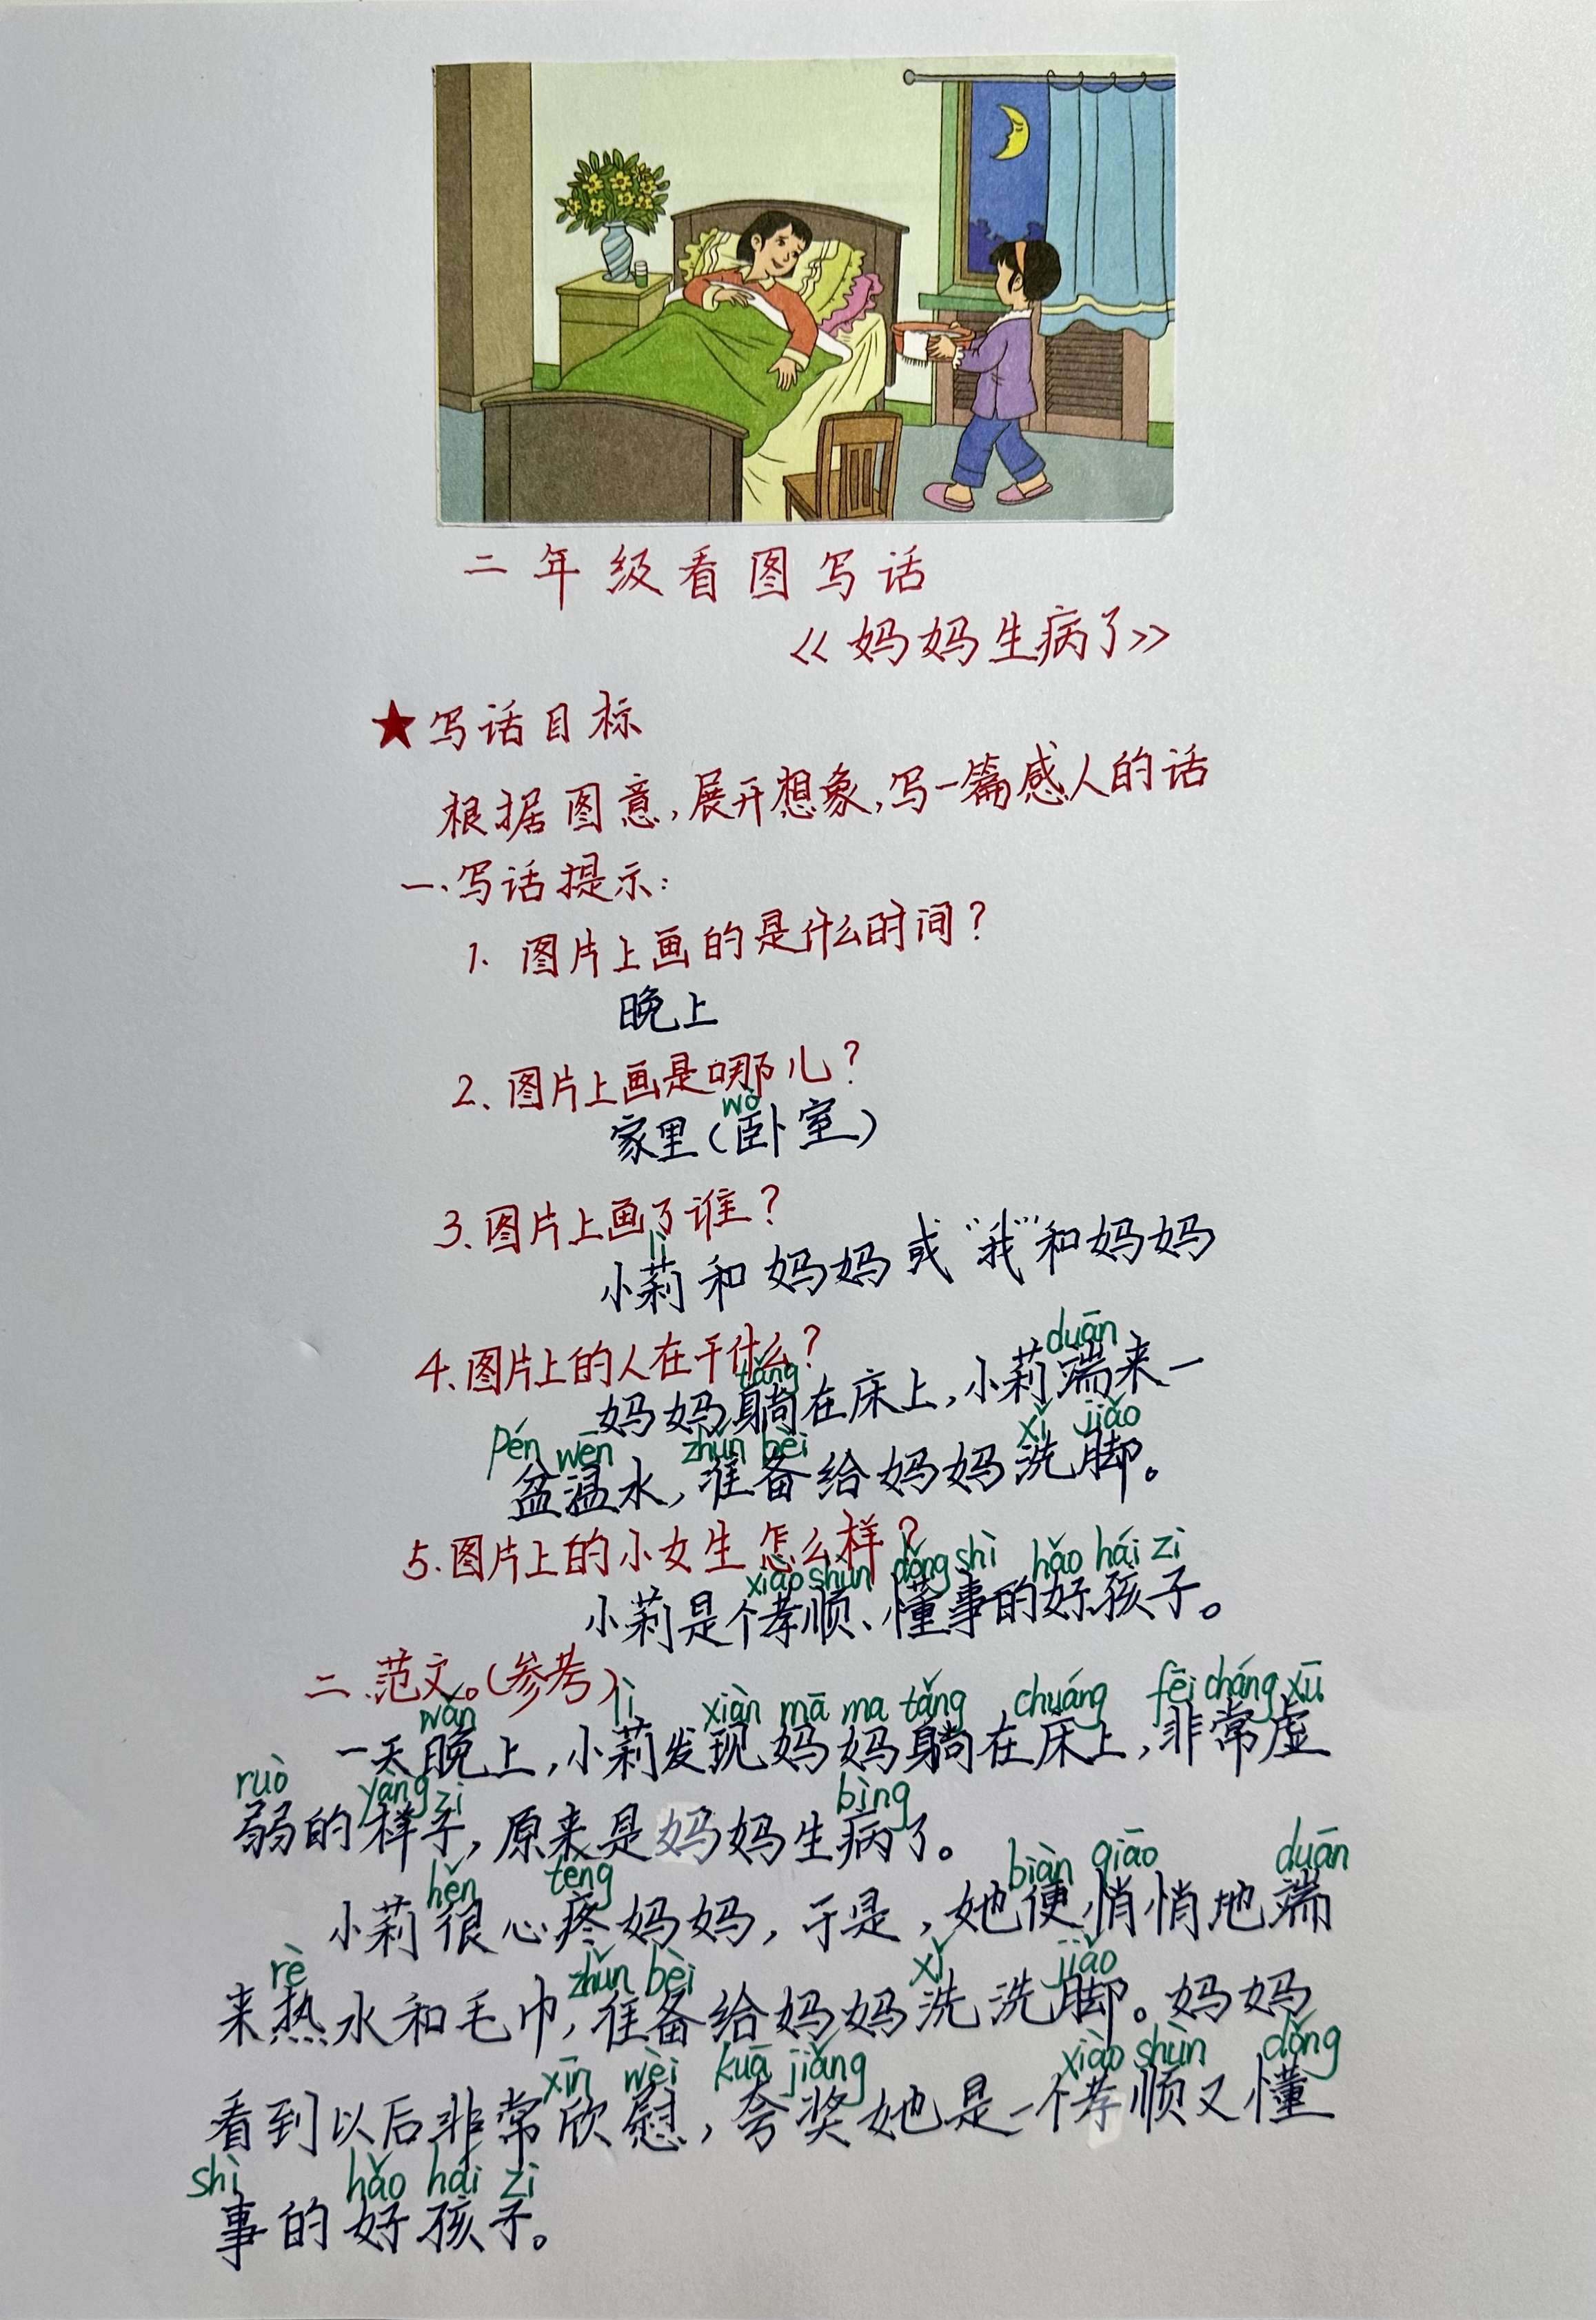 二年级看图写话
《妈妈生病了》
★写话目标
根据图意,展开想象,写一篇感人的话
一.写话提示:
1. 图片上画的是什么时间?
晚上
2、图片上画是哪儿?
wò
家里(卧室)
3、图片上画了谁?
lì
小莉和妈妈或“我”和妈妈
4、图片上的人在干什么?
tǎng duān
妈妈躺在床上,小莉端来一
pén wēn zhǔn bèi xǐ jiǎo
盆温水,准备给妈妈洗脚。
5.图片上的小女生怎么样?
xiào shùn dǒng shì hǎo hái zi
小莉是个孝顺、懂事的好孩子。
二.范文。(参考)
wǎn lì xiàn mā ma tǎng chuáng fēi cháng xū
一天晚上,小莉发现妈妈躺在床上,非常虚
ruò yàng zi bìng
弱的样子,原来是妈妈生病了。
hěn téng biàn qiāo duān
小莉很心疼妈妈,于是,她便悄悄地端
rè zhǔn bèi xǐ jiǎo
来热水和毛巾,准备给妈妈洗洗脚。妈妈
xīn wèi kuā jiǎng xiào shùn dǒng
看到以后非常欣慰,夸奖她是一个孝顺又懂
shì hǎo hái zi
事的好孩子。